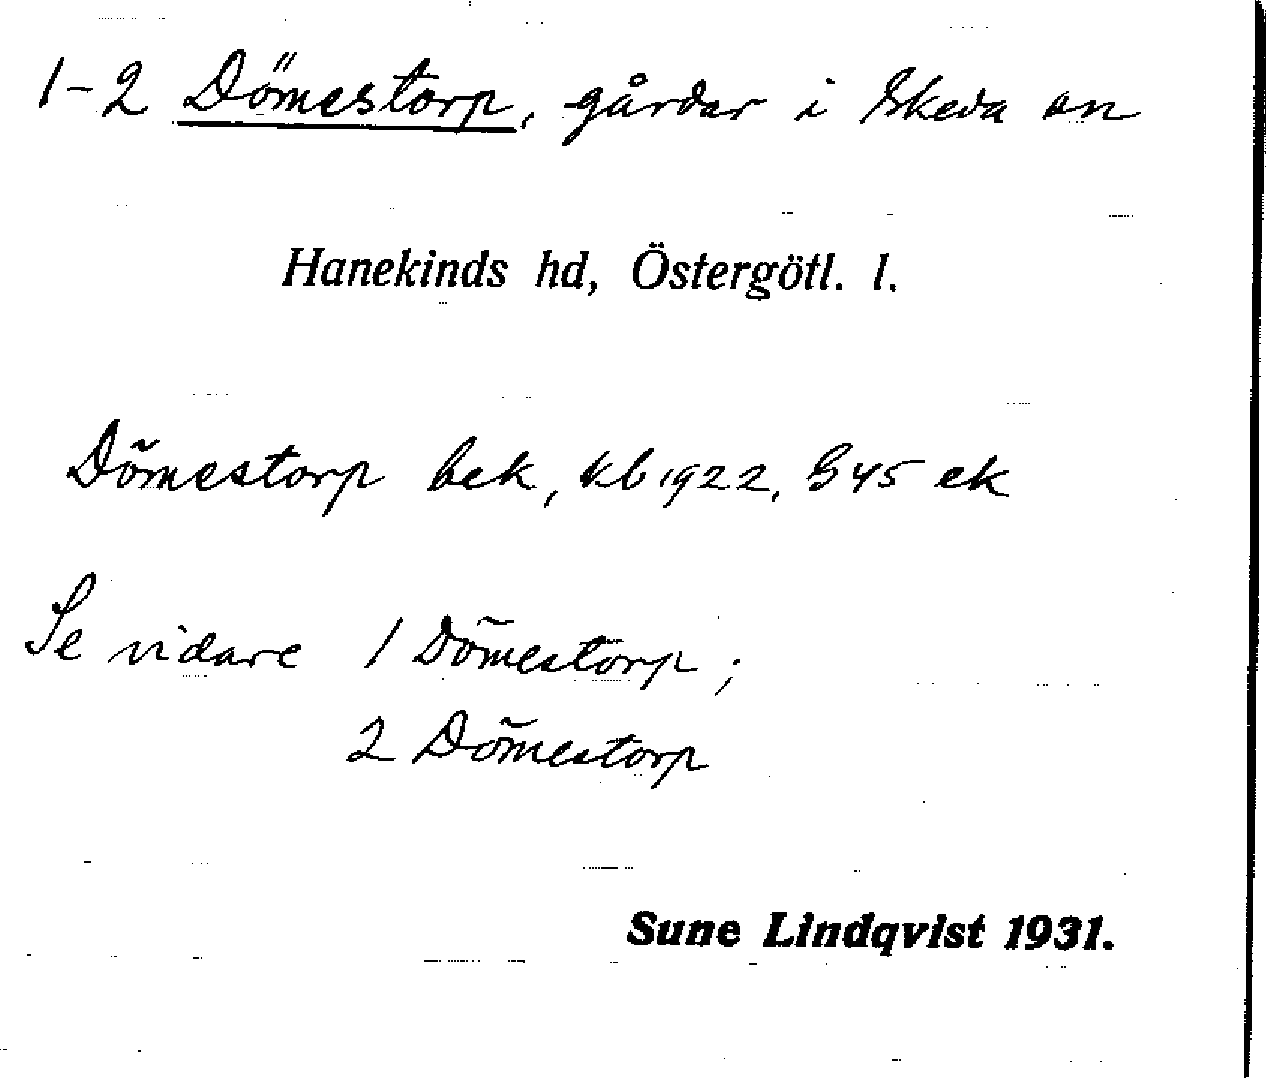 1-2 Dömestorp, gårdar i Skeda sn
Hanekinds hd, Östergötl. l.
Dömestorp bek, kb 1922, G45 ek
Se vidare 1 Dömestorp;
2 Dömestorp
Sune Lindqvist 1931.